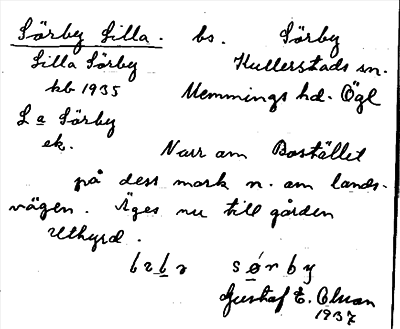 Sörby Lilla. bs. Sörby
Lilla Sörby Kullerstads sn.
kb 1935 Memmings hd. Ögl
La Sörby
ek. Narr om Bostället
på dess mark n. om lands-
vägen. Äges nu till gården
Uthyrd.
sørby
Gustaf E. Olson
1937